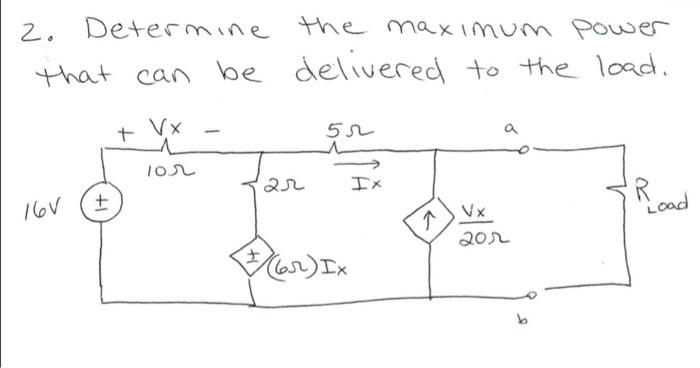 2. Determine the maximum power
that can be delivered to the load.
+ Vx -
5Ω
a
10Ω
2Ω
Ix
16V
±
↑
Vx
20Ω
RLoad
±
(6Ω)Ix
b